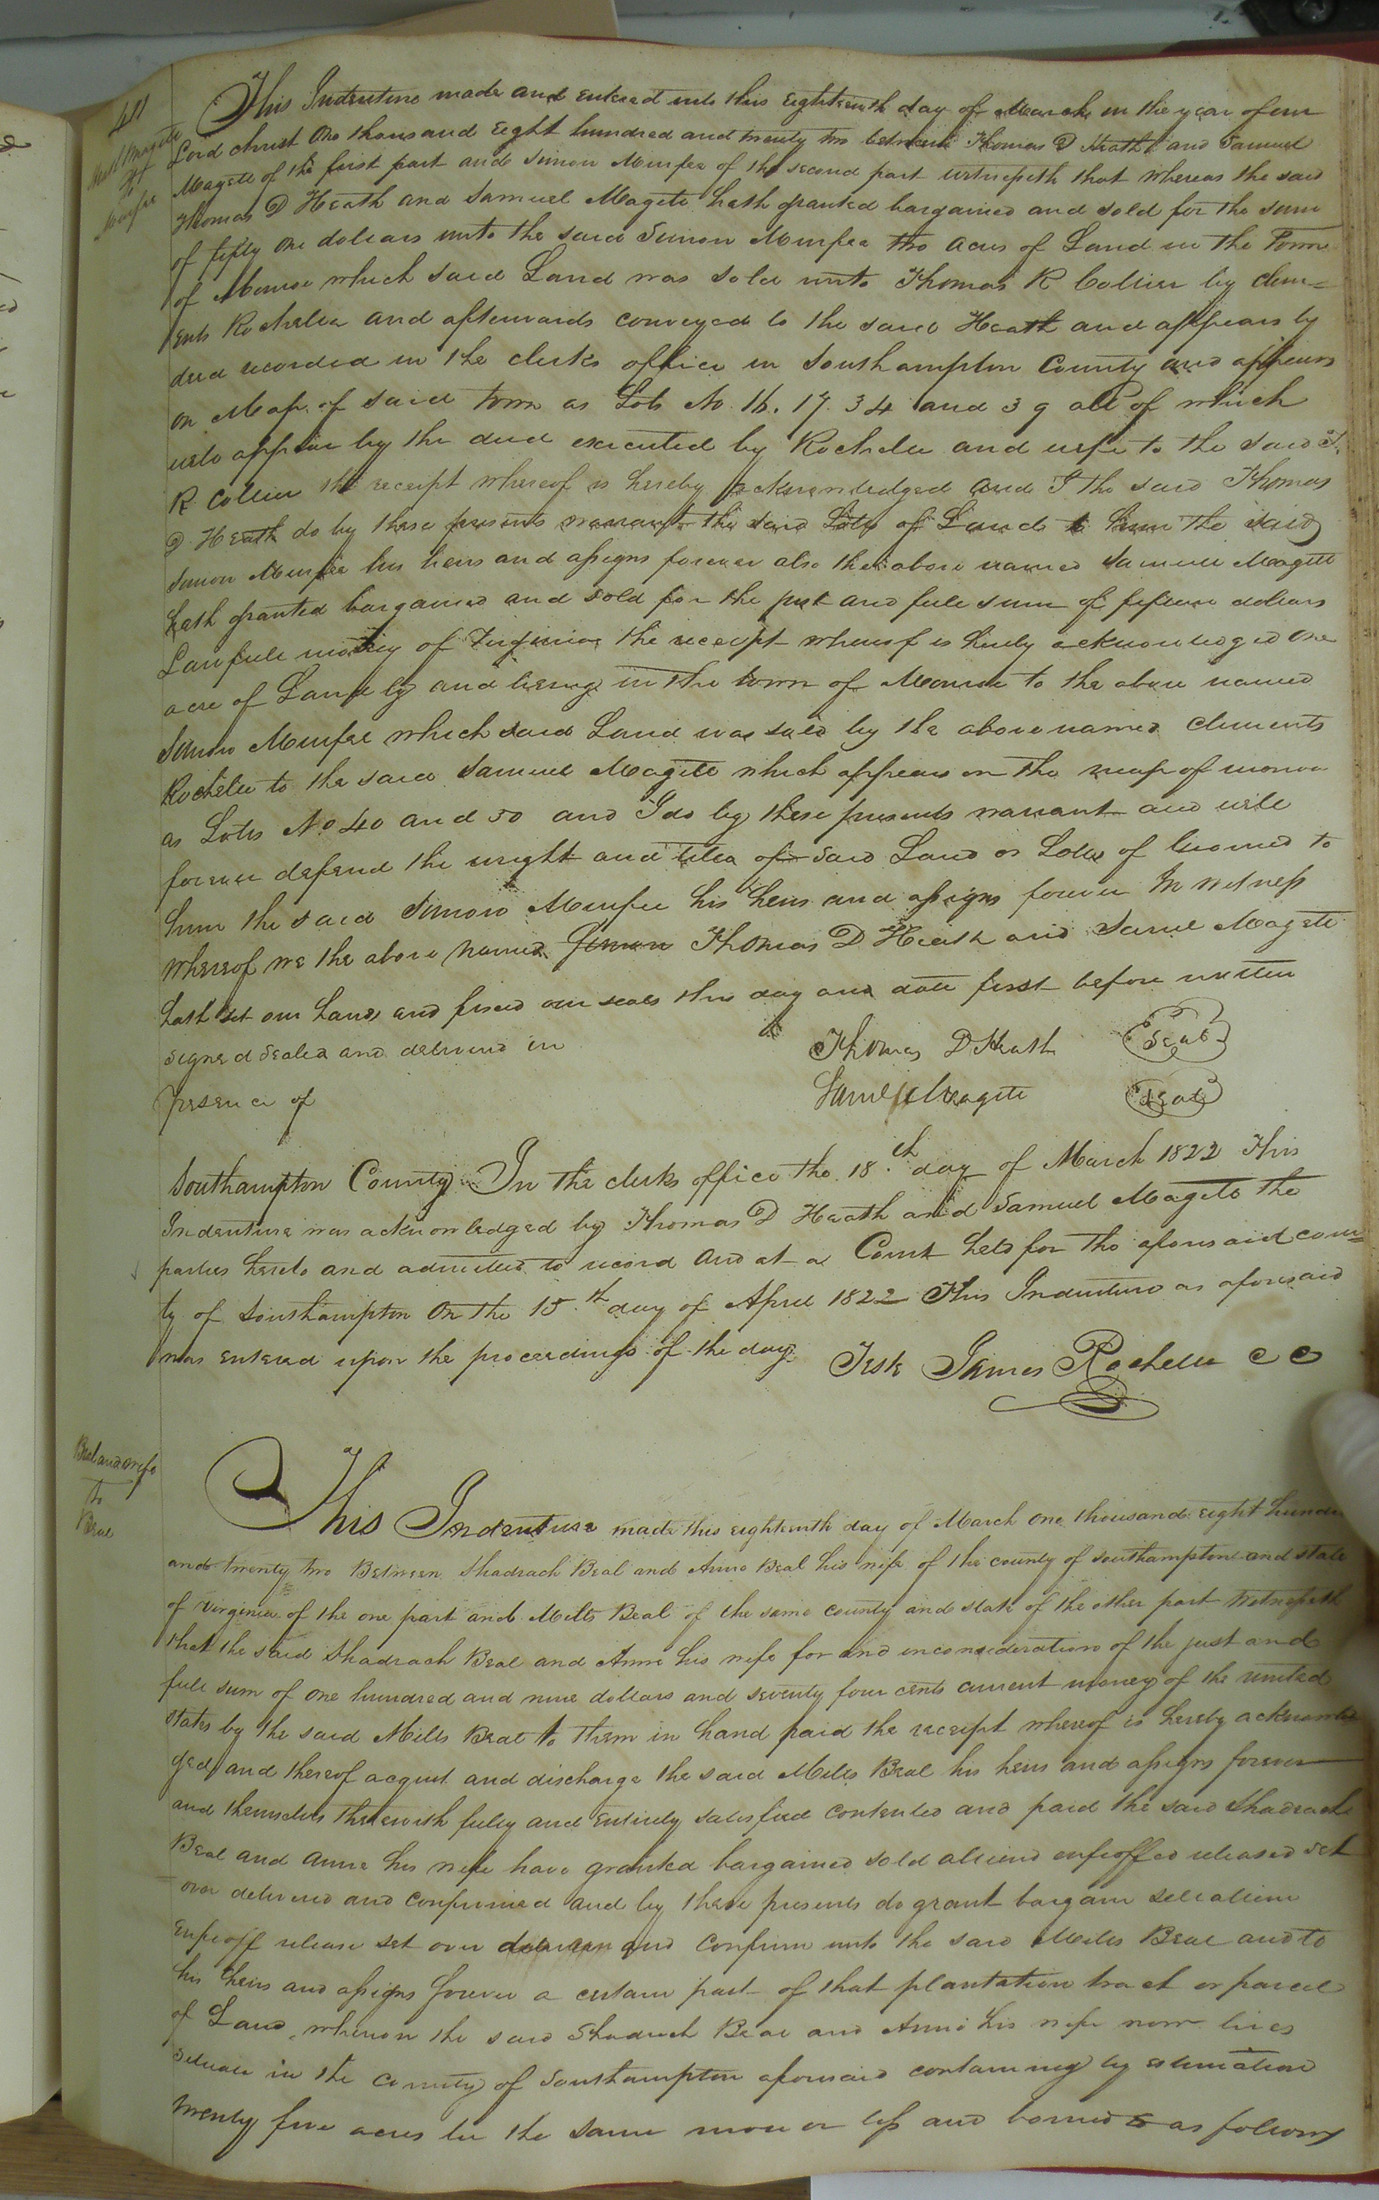 411
Heath & Magette
to
Murfee
This Indenture made and entered into this Eighteenth day of March in the year of our
Lord christ One thousand Eight hundred and twenty two between Thomas D Heath and Samuel
Magett of the first part and Simon Murfee of the second part witnesseth that whereas the said
Thomas D Heath and Samuel Magette hath granted bargained and sold for the sum
of fifty one dollars unto the said Simon Murfee two acres of Land in the Town
of Monroe which said Land was sold unto Thomas R Collier by Clem=
ents Rochelle and afterwards conveyed to the said Heath and appears by
deed recorded in the clerks office in Southampton County and appears
on Map of said town as Lots No. 16. 17. 34 and 39 all of which
will appear by the deed executed by Rochelle and wife to the said T.
R Collier the receipt whereof is hereby acknowledged and I the said Thomas
D Heath do by these presents warrant the said Lots of Land to him the said
Simon Murfee his heirs and assigns forever also the above named Samuel Magett
hath granted bargained and sold for the just and full sum of fifteen dollars
Lawfull money of Virginia the receipt whereof is hereby acknowledged One
acre of Land ly and being in the town of Monroe to the above named
Simon Murfee which said Land was sold by the above named Clements
Rochelle to the said Samuel Magette which appears on the map of monroe
as Lotes No 40 and 50 and I do by these presents warrant and will
forever defend the wright and titler of said Land or Lotes of Ground to
him the said Simon Murfee his heirs and assigns forever In witness
whereof we the above named Simon Thomas D Heath and Samel Magette
hath set our hands and fixed our seals this day and date first before written
signed sealed and delivered in
presence of
Thomas D Heath Seal
Saml Magette Seal
Southampton County In the clerks office the 18.th day of March 1822 This
Indenture was acknowledged by Thomas D Heath and Samuel Magette the
parties hereto and admitted to record And at a Court held for the aforesaid coun=
ty of Southampton On the 15.th day of April 1822 This Indenture as aforesaid
was entered upon the proceedings of the day.
Teste James Rochelle C C
Beal and wife
to
Beal
This Indenture made this eighteenth day of March One thousand eight hundred
and twenty two Between Shadrach Beal and Anne Beal his wife of the county of Southampton and state
of Virginia of the one part and Mills Beal of the same county and state of the other part Witnesseth
that the said Shadrach Beal and Anne his wife for and inconsideration of the just and
full sum of one hundred and nine dollars and seventy four cents current money of the united
states by the said Mills Beal to them in hand paid the receipt whereof is hereby acknowled
ged and thereof acquit and discharge the said Mills Beal his heirs and assigns forever
and themselves therewith fully and entirely satisfied contented and paid the said Shadrach
Beal and Anne his wife have granted bargained sold aliend enfeoffed released set
over delivered and confirmed and by these presents do grant bargain sell alien
Enfeoff release set over and confirm unto the said Mills Beal and to
his heirs and assigns forever a certain part of that plantation tract or parcel
of Land, whereon the said Shadrach Beal and Anne his wife now lives
situate in the county of Southampton aforesaid containing by estimation
twenty five acres be the same more or less and as follows